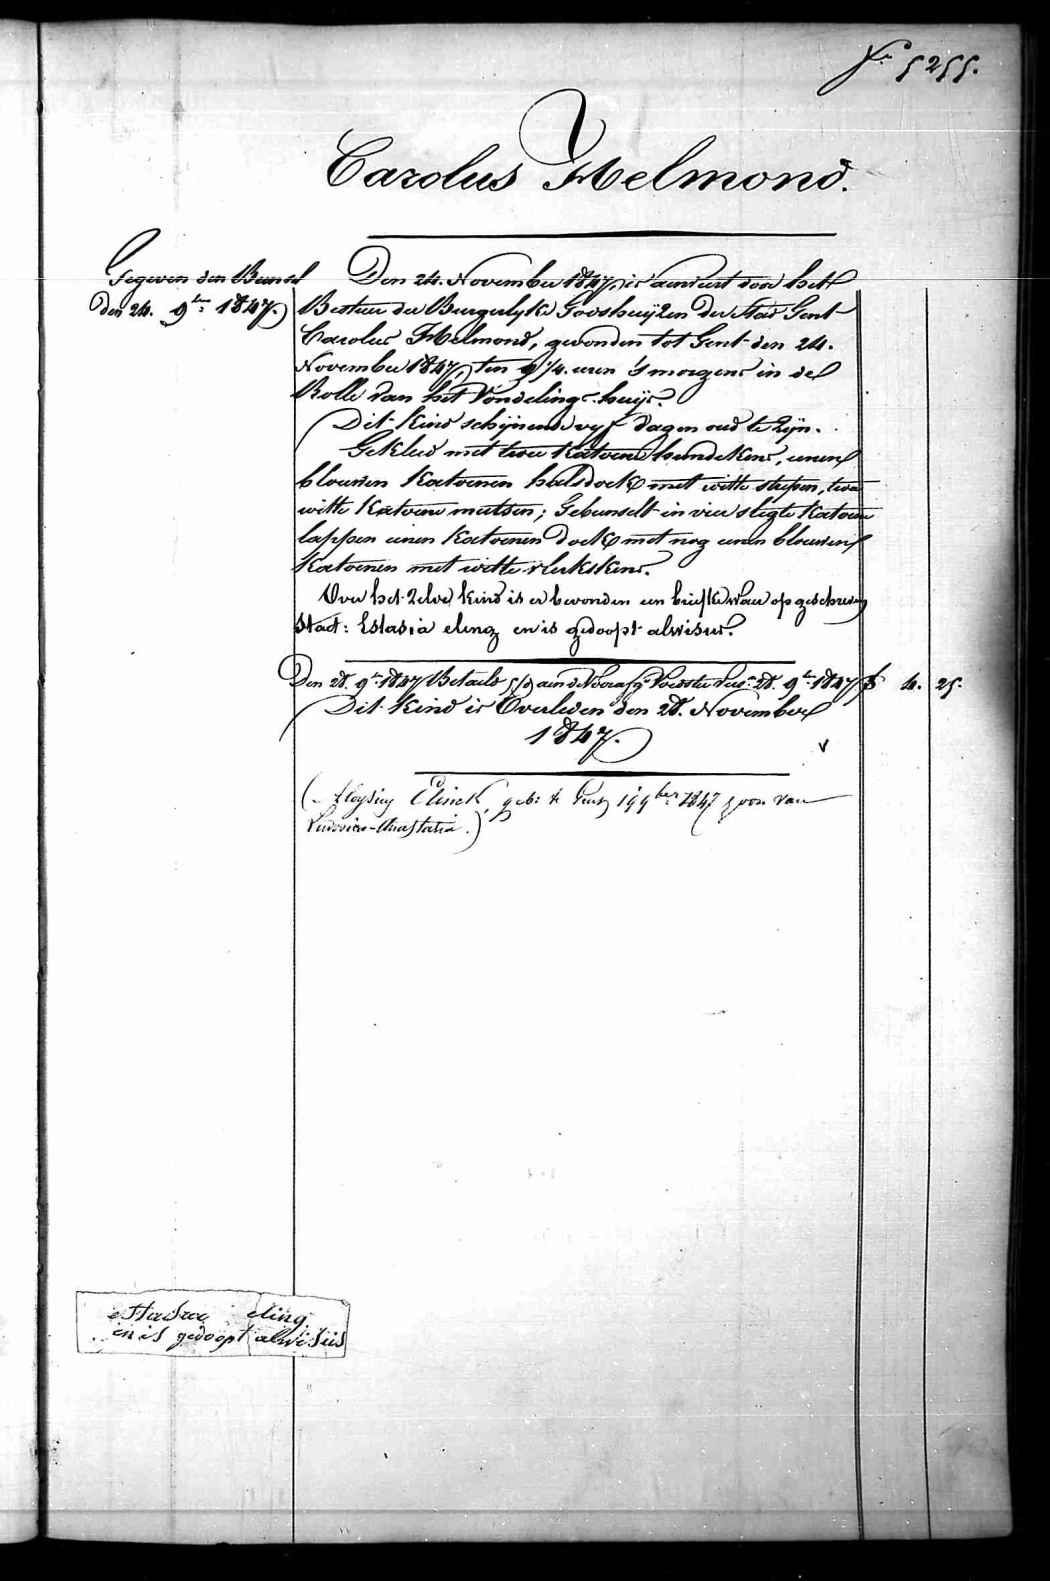 Nr 5255.
Carolus Helmond.
Gegeven den Bunsel
den 24. 9ber 1847.
Den 24. November 1847, is aenveert door het
Bestuer der Burgerlyke Godshuijzen der Stad Gent
Carolus Helmond, gevonden tot Gent den 24.
November 1847, ten 9 1/4. uren 's morgens in de
Rolle van het Vondelings-huijs.
Dit Kind schijnende vyf dagen oud te Zijn.
Gekleed met twee Katoene hemdekens, eenen
blauwen Katoenen halsdoek met witte strepen, twee
witte Katoene mutsen; Gebunselt in vier slegte Katoene
lappen eenen Katoenen doek met nog eenen blauwen
Katoenen met witte vlekskens.
Over het Zelve Kind is er bevonden een briefke waer op geschreven
Staet: Estasia eling en is gedoopt alwisus.
Den 28. 9ber 1847 Betaeld aen de Voedster 28. 9ber 1847 4. 25.
Dit Kind is Overleden den 28. November
1847.
(Aloysius Elinck, geb: te Gent 19 9ber 1847 zoon van
Ludovica-Anastasia.)
estasia eling
en is gedoopt alwisiis